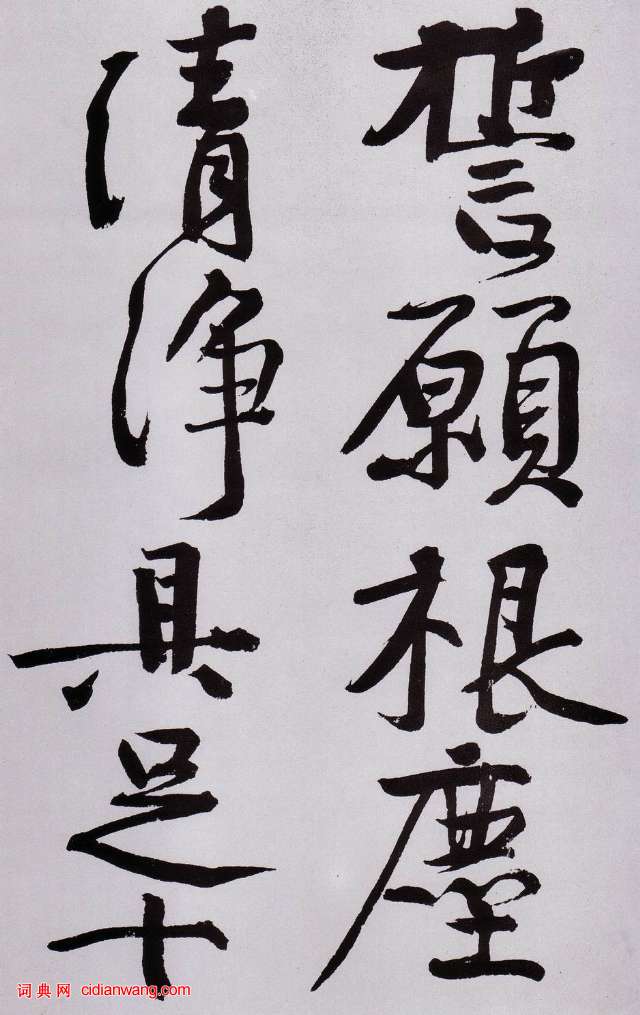 誓願根塵
清淨具足十
词典网 cidianwang.com